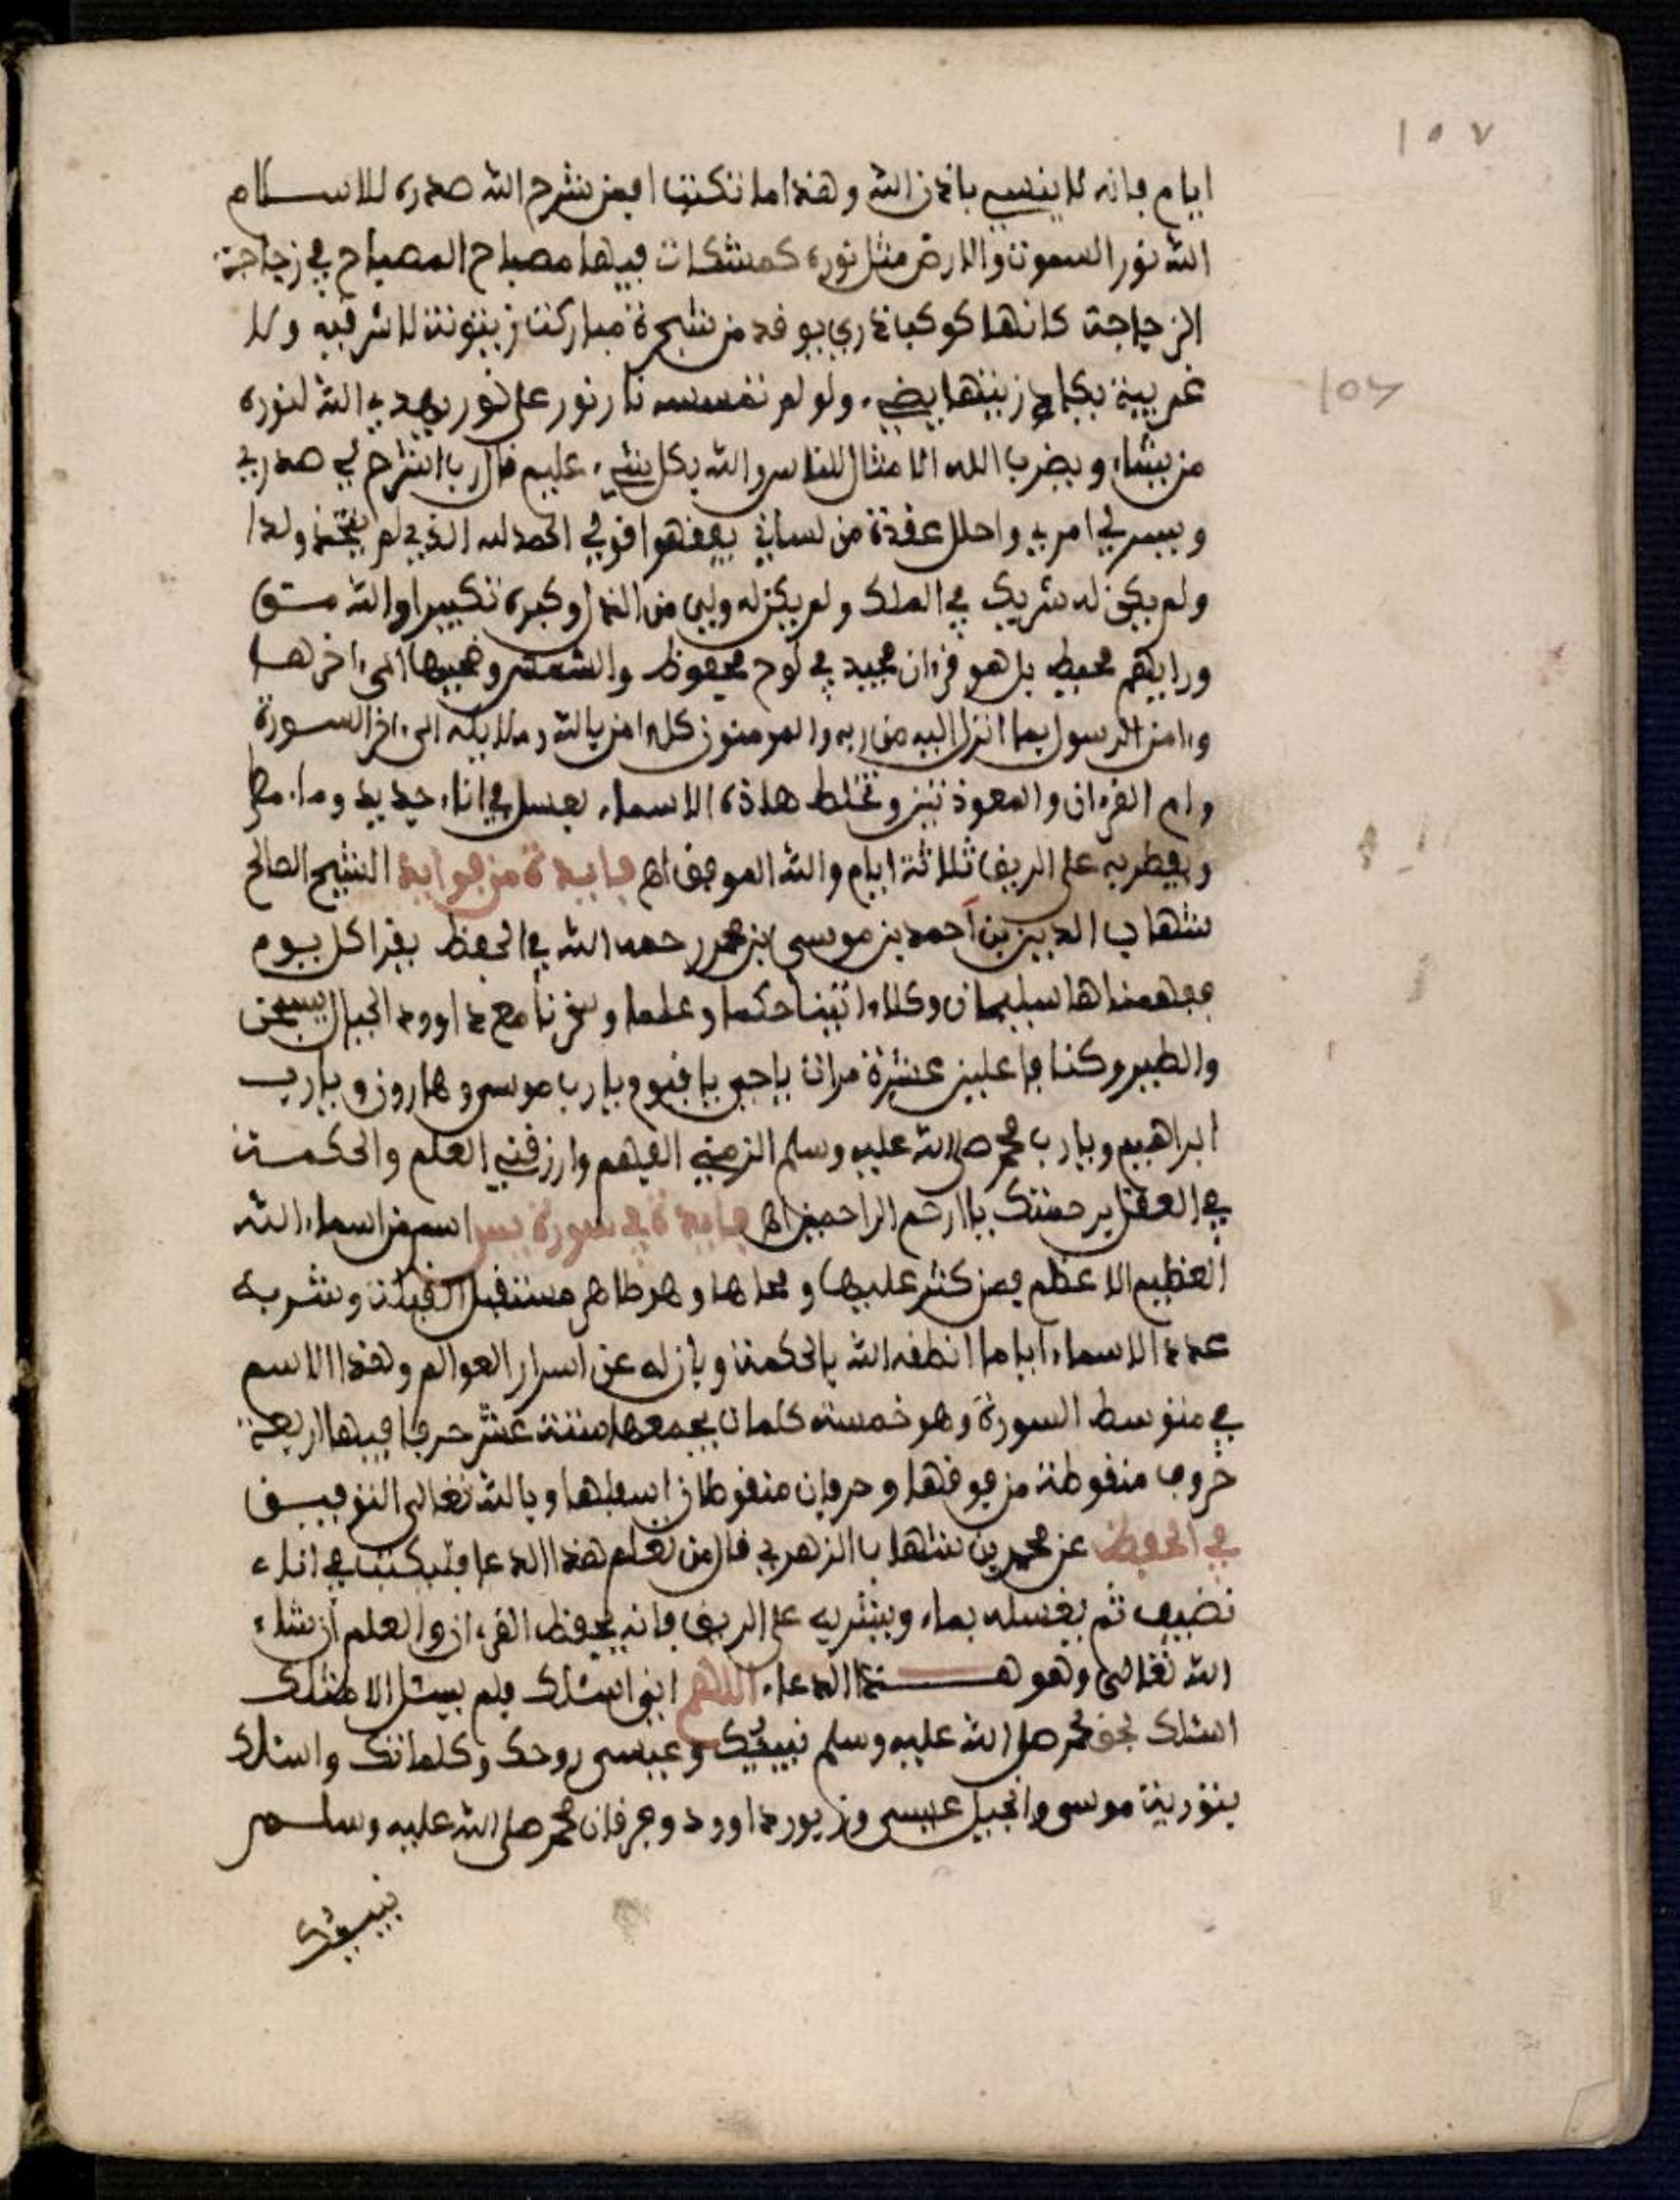 ١٥٧
ايام فانه لا ينسى باذن الله وهذا ما تكتب افمن شرح الله صدره للاسلام
الله نور السموت والارض مثل نوره كمشكات فيها مصباح المصباح في زجاجة
الزجاجة كانها كوكب دري يوقد من شجرة مباركة زيتونة لا شرقيه ولا
غربية يكاد زيتها يضيء ولو لم تمسسه نار نور على نور يهدي الله لنوره
من يشاء ويضرب الله الامثال للناس والله بكل شيء عليم قال رب اشرح لي صدري
ويسر لي امري واحلل عقدة من لساني يفقهوا قولي الحمد لله الذي لم يتخذ ولدا
ولم يكن له شريك في الملك ولم يكن له ولي من الذل وكبره تكبيرا والله من
ورايهم محيط بل هو قرءان مجيد في لوح محفوظ والشمس وضحيها الى ءاخرها
وءامن الرسول بما انزل اليه من ربه والمومنون كل ءامن بالله وملايكه الى ءاخر السورة
وام القرءان والمعوذتين وتخلط هاذه الاسماء بعسل في اناء جديد وماء مطر
ويفطر به على الريق ثلاثة ايام والله الموفق اهـ فايدة من فوايد الشيخ الصالح
شهاب الدين بن أحمد بن موسى بن محمد رحمه الله في الحفظ يقرا كل يوم
ففهمناها سليمان وكلا ءاتينا حكما وعلما وسخرنا مع داوود الجبال يسبحن
والطير وكنا فاعلين عشرة مرات ياحي ياقيوم يارب موسى وهارون ويارب
ابراهيم ويارب محمد صلى الله عليه وسلم الزمني الفهم وارزقني العلم والحكمة
في العقل برحمتك ياارحم الراحمين اهـ فايدة في سورة يس اسم من اسماء الله
العظيم الاعظم فمن كتر عليها ومحاها وهو طاهر مستقبل القبلة وشربه
عدد الاسماء اياما انطقه الله بالحكمة وبان له عن اسرار العوالم وهذا الاسم
في متوسط السورة وهو خمسة كلمات يجمعها ستة عشر حرفا فيها اربعة
حروف منقوطة من فوقها وحرفان منقوطان اسفلها وبالله تعالى التوفيق
في الحفظ عن محمد بن شهاب الزهري قال من تعلم هذا الدعا فليكتب في اناء
نضيف ثم يغسله بماء ويشربه على الريق فانه يحفظ القرءان والعلم ان شاء
الله تعالى وهو هذا الدعاء اللهم اني اسئلك فلم يسئل الا مثلك
اسئلك بحق محمد صلى الله عليه وسلم نبيئك وعيسى روحك وكلماتك واسئلك
بتورية موسى وانجيل عيسى وزبور داوود وفرفان محمد صلى الله عليه وسلم
نبيئك